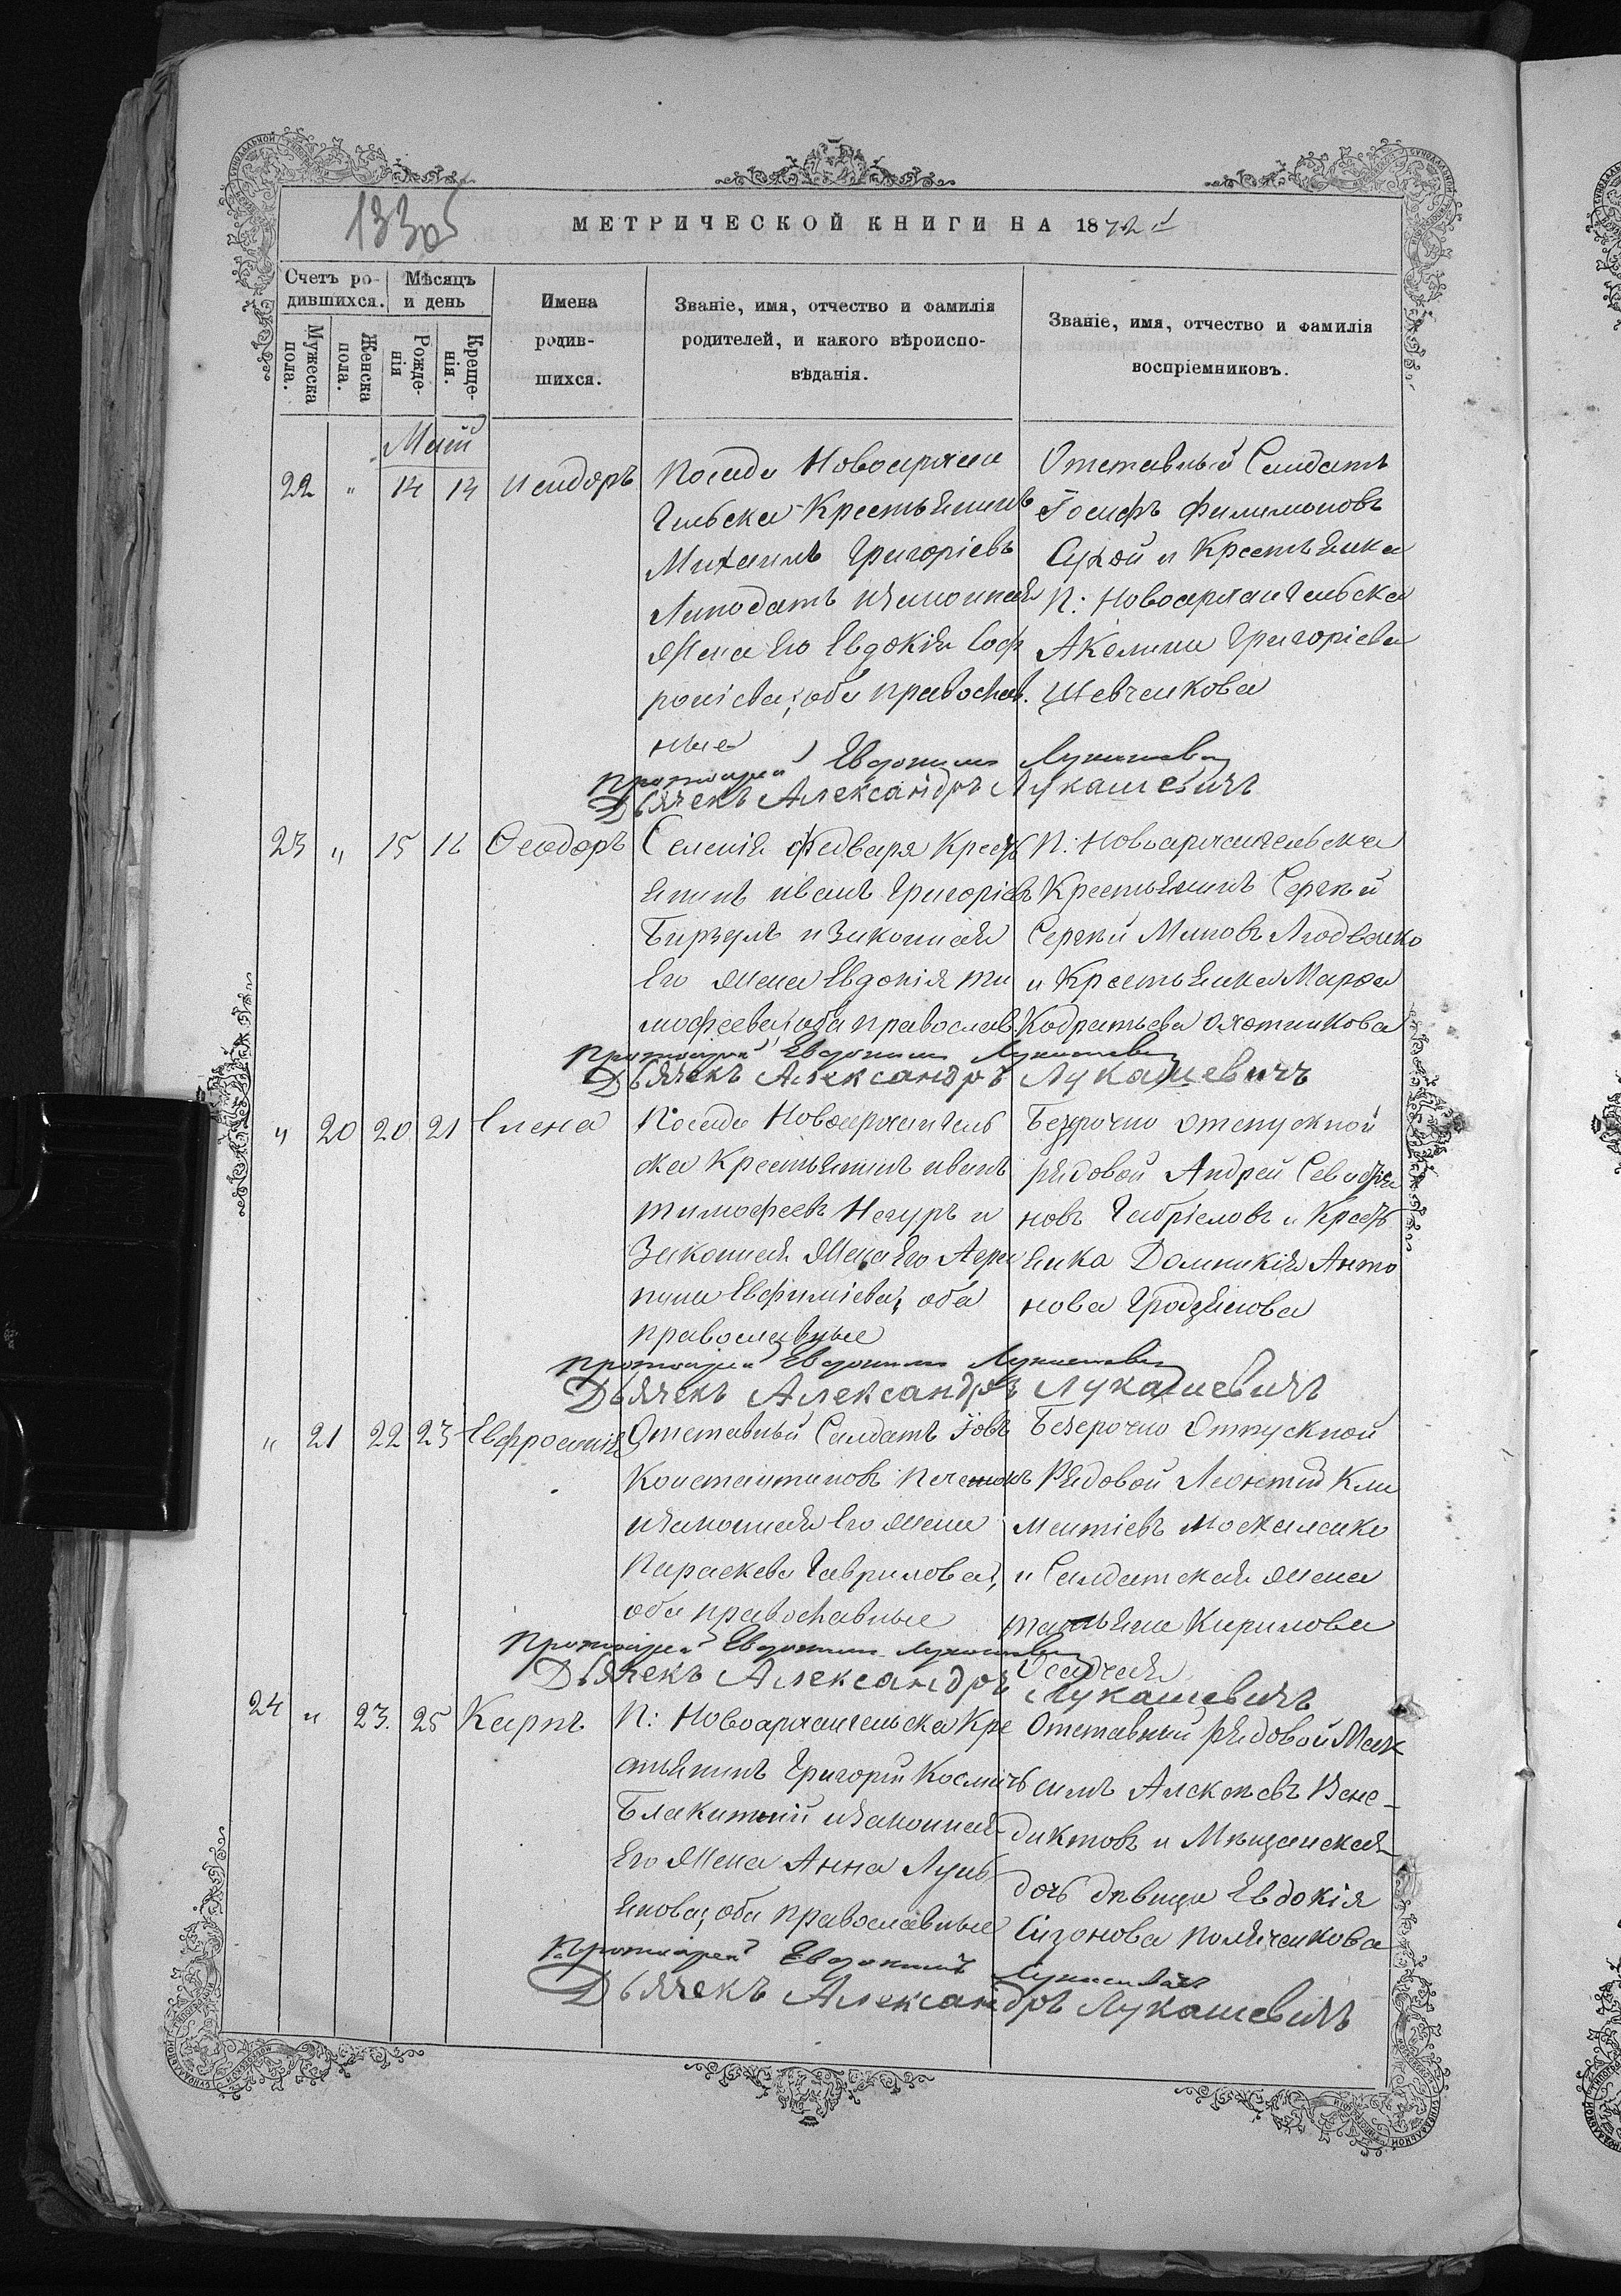 1330
МЕТРИЧЕСКОЙ КНИГИ НА 1872
Счетъ ро-
дившихся.
Мѣсяцъ
и день
Мужеска
пола.
Женска
пола.
Рожде-
нія
Креще-
нія.
Имена
родив-
шихся.
Званіе, имя, отчество и фамилія
родителей, и какого вѣроиспо-
вѣданія.
Званіе, имя, отчество и фамилія
воспріемниковъ.
Май
22 " 14 14 Исидоръ
Посада Новоархан
гельска Крестьянинъ
Михаилъ Григоріевъ
Липодатъ изаконная
жена Его Евдокія Соф
роніева; оба православ.
ные
Отставный Салдатъ
Іосифъ Филимоновъ
Сухой и Крестьянка
П: Новоархангельска
Акелина Григоріева
Шевченкова
Протоіерей Евдокимъ Лукашевичъ
Дьячекъ Александръ Лукашевичъ
23 " 15 16 Ѳеодоръ
Селенія Федваря Кресть
янинъ иванъ Григоріевъ
Бирзулъ и Законная
Его жена Евдокія Ти
мофеева; оба православ.
П: Новоархангельска
Крестьянинъ Сергѣй
Сергѣй Миновъ Людвенко
и Крестьянка Марѳа
Кодратьева Охотникова
Протоіерей Евдокимъ Лукашевичъ
Дьячекъ Александръ Лукашевичъ
" 20 20 21 Елена
Посада Новоархангель
ска Крестьянинъ иванъ
тимофеевъ Негуръ и
Законная Жена Его Агри
пина Евфиміева; оба
православные
Безсрочно отпускной
рядовой Андрей Севастья
новъ Габріеловъ и Кресть
янка Домникія Анто
нова Гродзянова
Протоіерей Евдокимъ Лукашевичъ
Дьячекъ Александръ Лукашевичъ
" 21 22 23 Евфросинія
Отставный Салдатъ Іовъ
Константиновъ
изаконная Его жена
Параскева Гаврилова;
оба православные
Безсрочно Отпускной
Рядовой Леонтій Кли
ментіевъ Москаленко
и Салдатская жена
татьяна Кирилова
Осадчая
Протоіерей Евдокимъ Лукашевичъ
Дьячекъ Александръ Лукашевичъ
24 " 23. 25 Карпъ
П: Новоархангельска Кре
стьянинъ Григорій Космичъ
Блакитній изаконная
Его Жена Анна Лукь
янова; оба православные
Отставный рядовой Мак
симъ Алексѣевъ Вене-
диктовъ и Мѣщанская
дочь дѣвица Евдокія
Сизонова Поляченкова
Протоіерей Евдокимъ Лукашевичъ
Дьячекъ Александръ Лукашевичъ